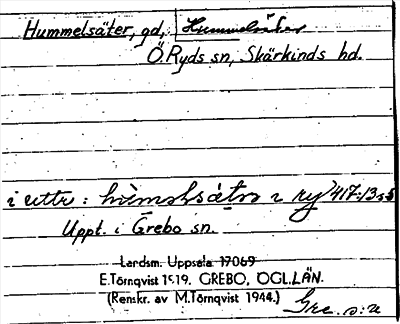 Hummelsäter, gd, Hummelsäter
Ö. Ryds sn, Skärkinds hd.
i uttr: i ry 417:13 s 5
Uppt. i Grebo sn.
Landsm. Uppsala 17069
E. Törnqvist 1919. GREBO, ÖGL.LÄN.
(Renskr. av M. Törnqvist 1944.)